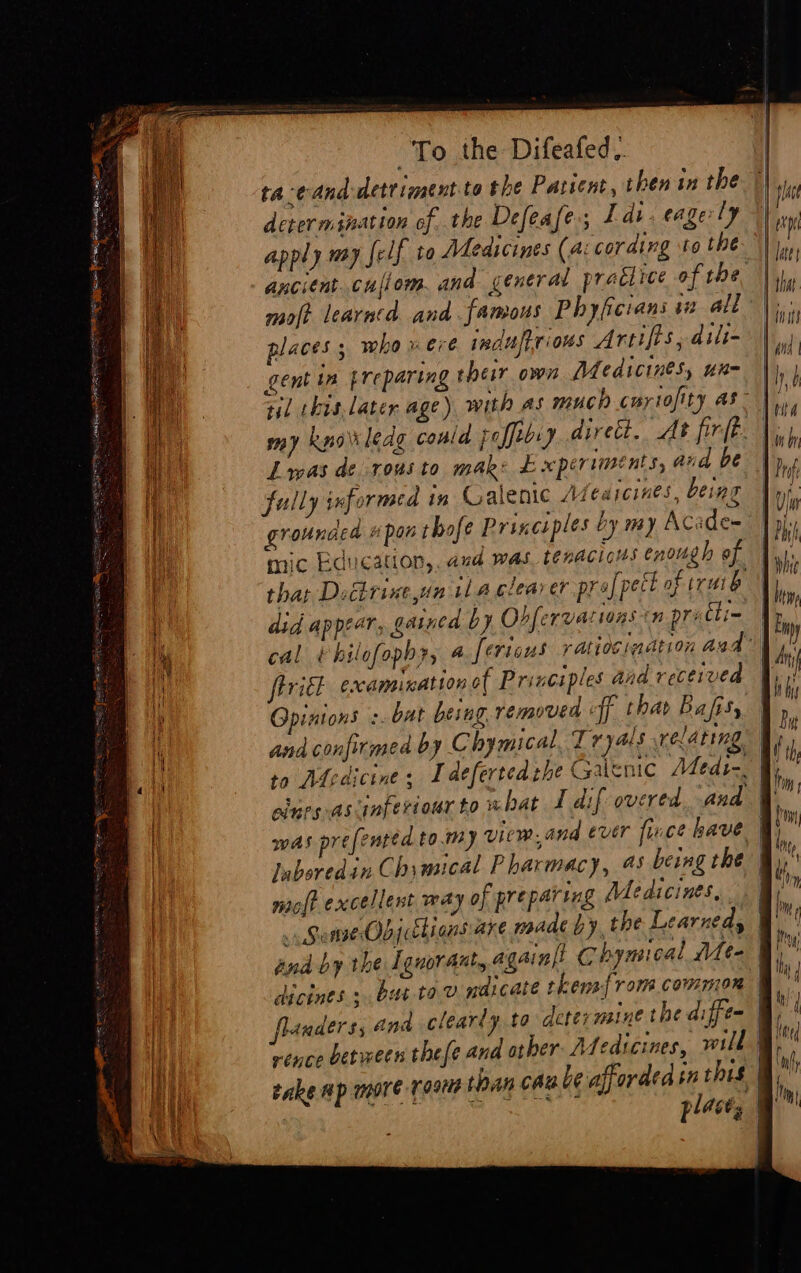 To the Diſeaſed.
ta e and detriment to the Patient, then in the
determination of the Deſeaſe; I di eagerly
apply my ſelf to Medicines (according to the
ancient cuſtom and general practice of the
moſt learned and famous Phyſicians in all
places; who were induſtrious Artiſts, dili-
gent in preparing their own Medicines, un-
til this later age) with as much curioſity as
my knowledg could poſſibly direct. At firſt
I was deſirous to make Experiments, and be
fully informed in Galenic Medicines, being
grounded upon thoſe Principles by my Acade-
mic Education, and was tenacious enough of
that Doctrine, until a clearer proſpect of truth
did appear, gained by Obſervations in practi-
cal Philoſophy, a ſerious ratiocination and
ſtrict examination of Principles and received
Opinions: but being removed off that Baſis,
and confirmed by Chymical Tryals relating
to Medicine; I deſerted the Galenic Medi-
cines as inferiour to what I diſcovered and
was preſented to my view, and ever ſince have
labored in Chymical Pharmacy, as being the
moſt excellent way of preparing Medicines.
Some Objections are made by the Learned,
and by the Ignorant, againſt Chymical Me-
dicines; but to vindicate them from common
ſlanders, and clearly to determine the diffe-
rence between theſe and other Medicines, will
take up more room than can be afforded in this
place,